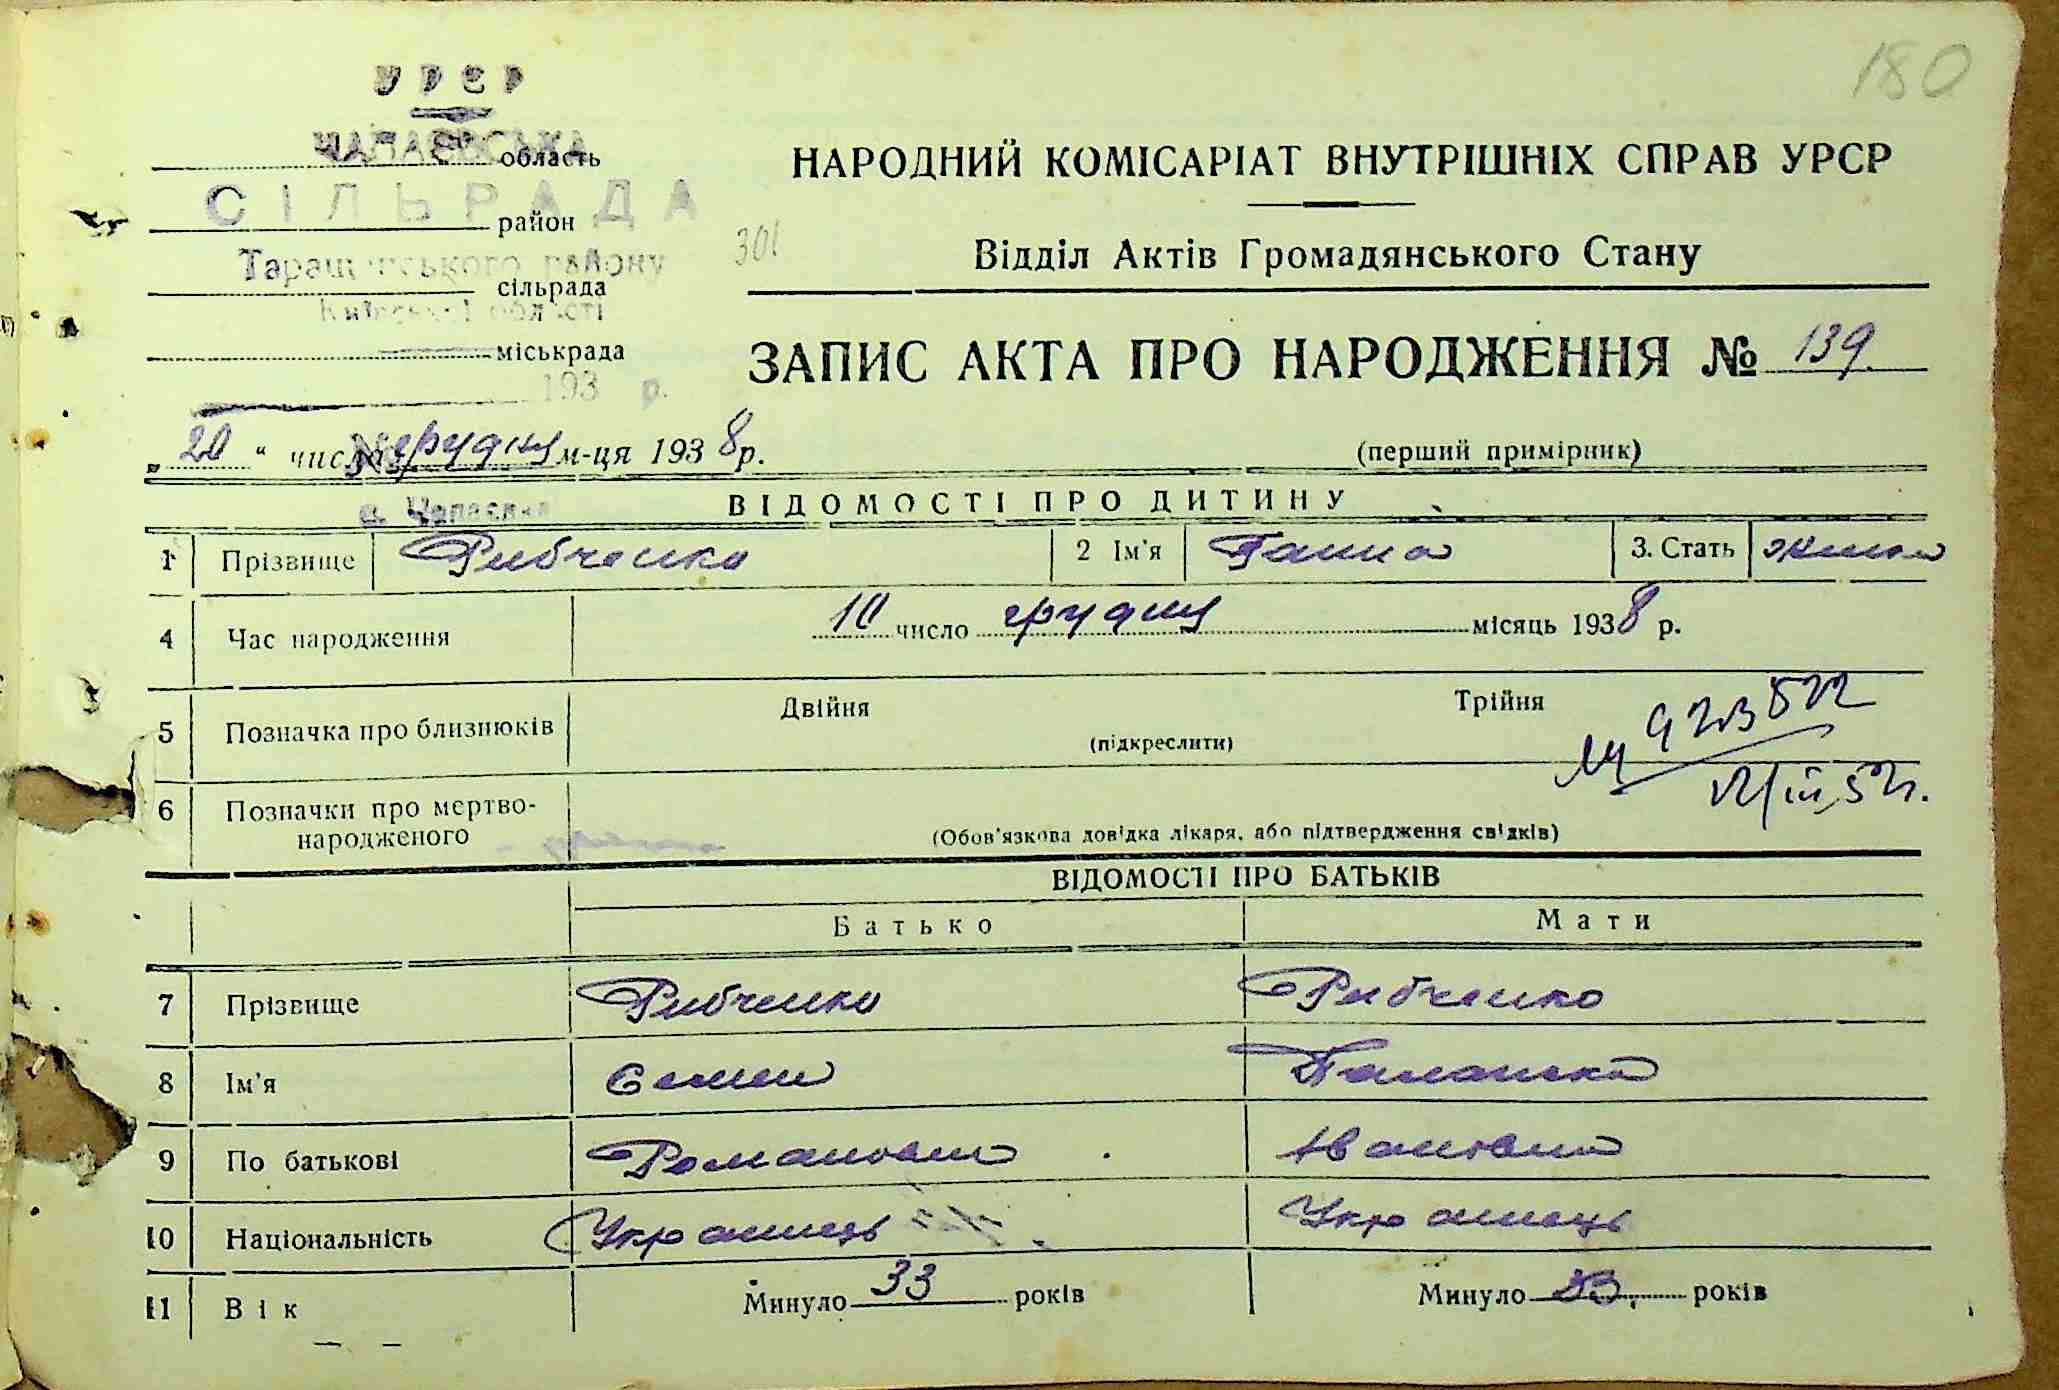 180
УРСР
ЧАПАЄВСЬКА
область
НАРОДНИЙ КОМІСАРІАТ ВНУТРІШНІХ СПРАВ УРСР
СІЛЬРАДА
район
301
Відділ Актів Громадянського Стану
Таращанського району
сільрада
Київської області
міськрада
ЗАПИС АКТА ПРО НАРОДЖЕННЯ № 139.
193 р.
„20“ числа грудня м-ця 1938 р.
(перший примірник)
с. Чапаєвка
ВІДОМОСТІ ПРО ДИТИНУ
1 Прізвище Рибченко 2 Ім'я Ганна 3. Стать
4 Час народження 10 число грудня місяць 1938 р.
5 Позначка про близнюків Двійня Трійня
(підкреслити)
6 Позначки про мертвонародженого
(Обов'язкова довідка лікаря, або підтвердження свідків)
ВІДОМОСТІ ПРО БАТЬКІВ
Батько Мати
7 Прізвище Рибченко Рибченко
8 Ім'я Семен Палажка
9 По батькові Романович Івановна
10 Національність Українець Українець
11 Вік Минуло 33 років Минуло 33. років